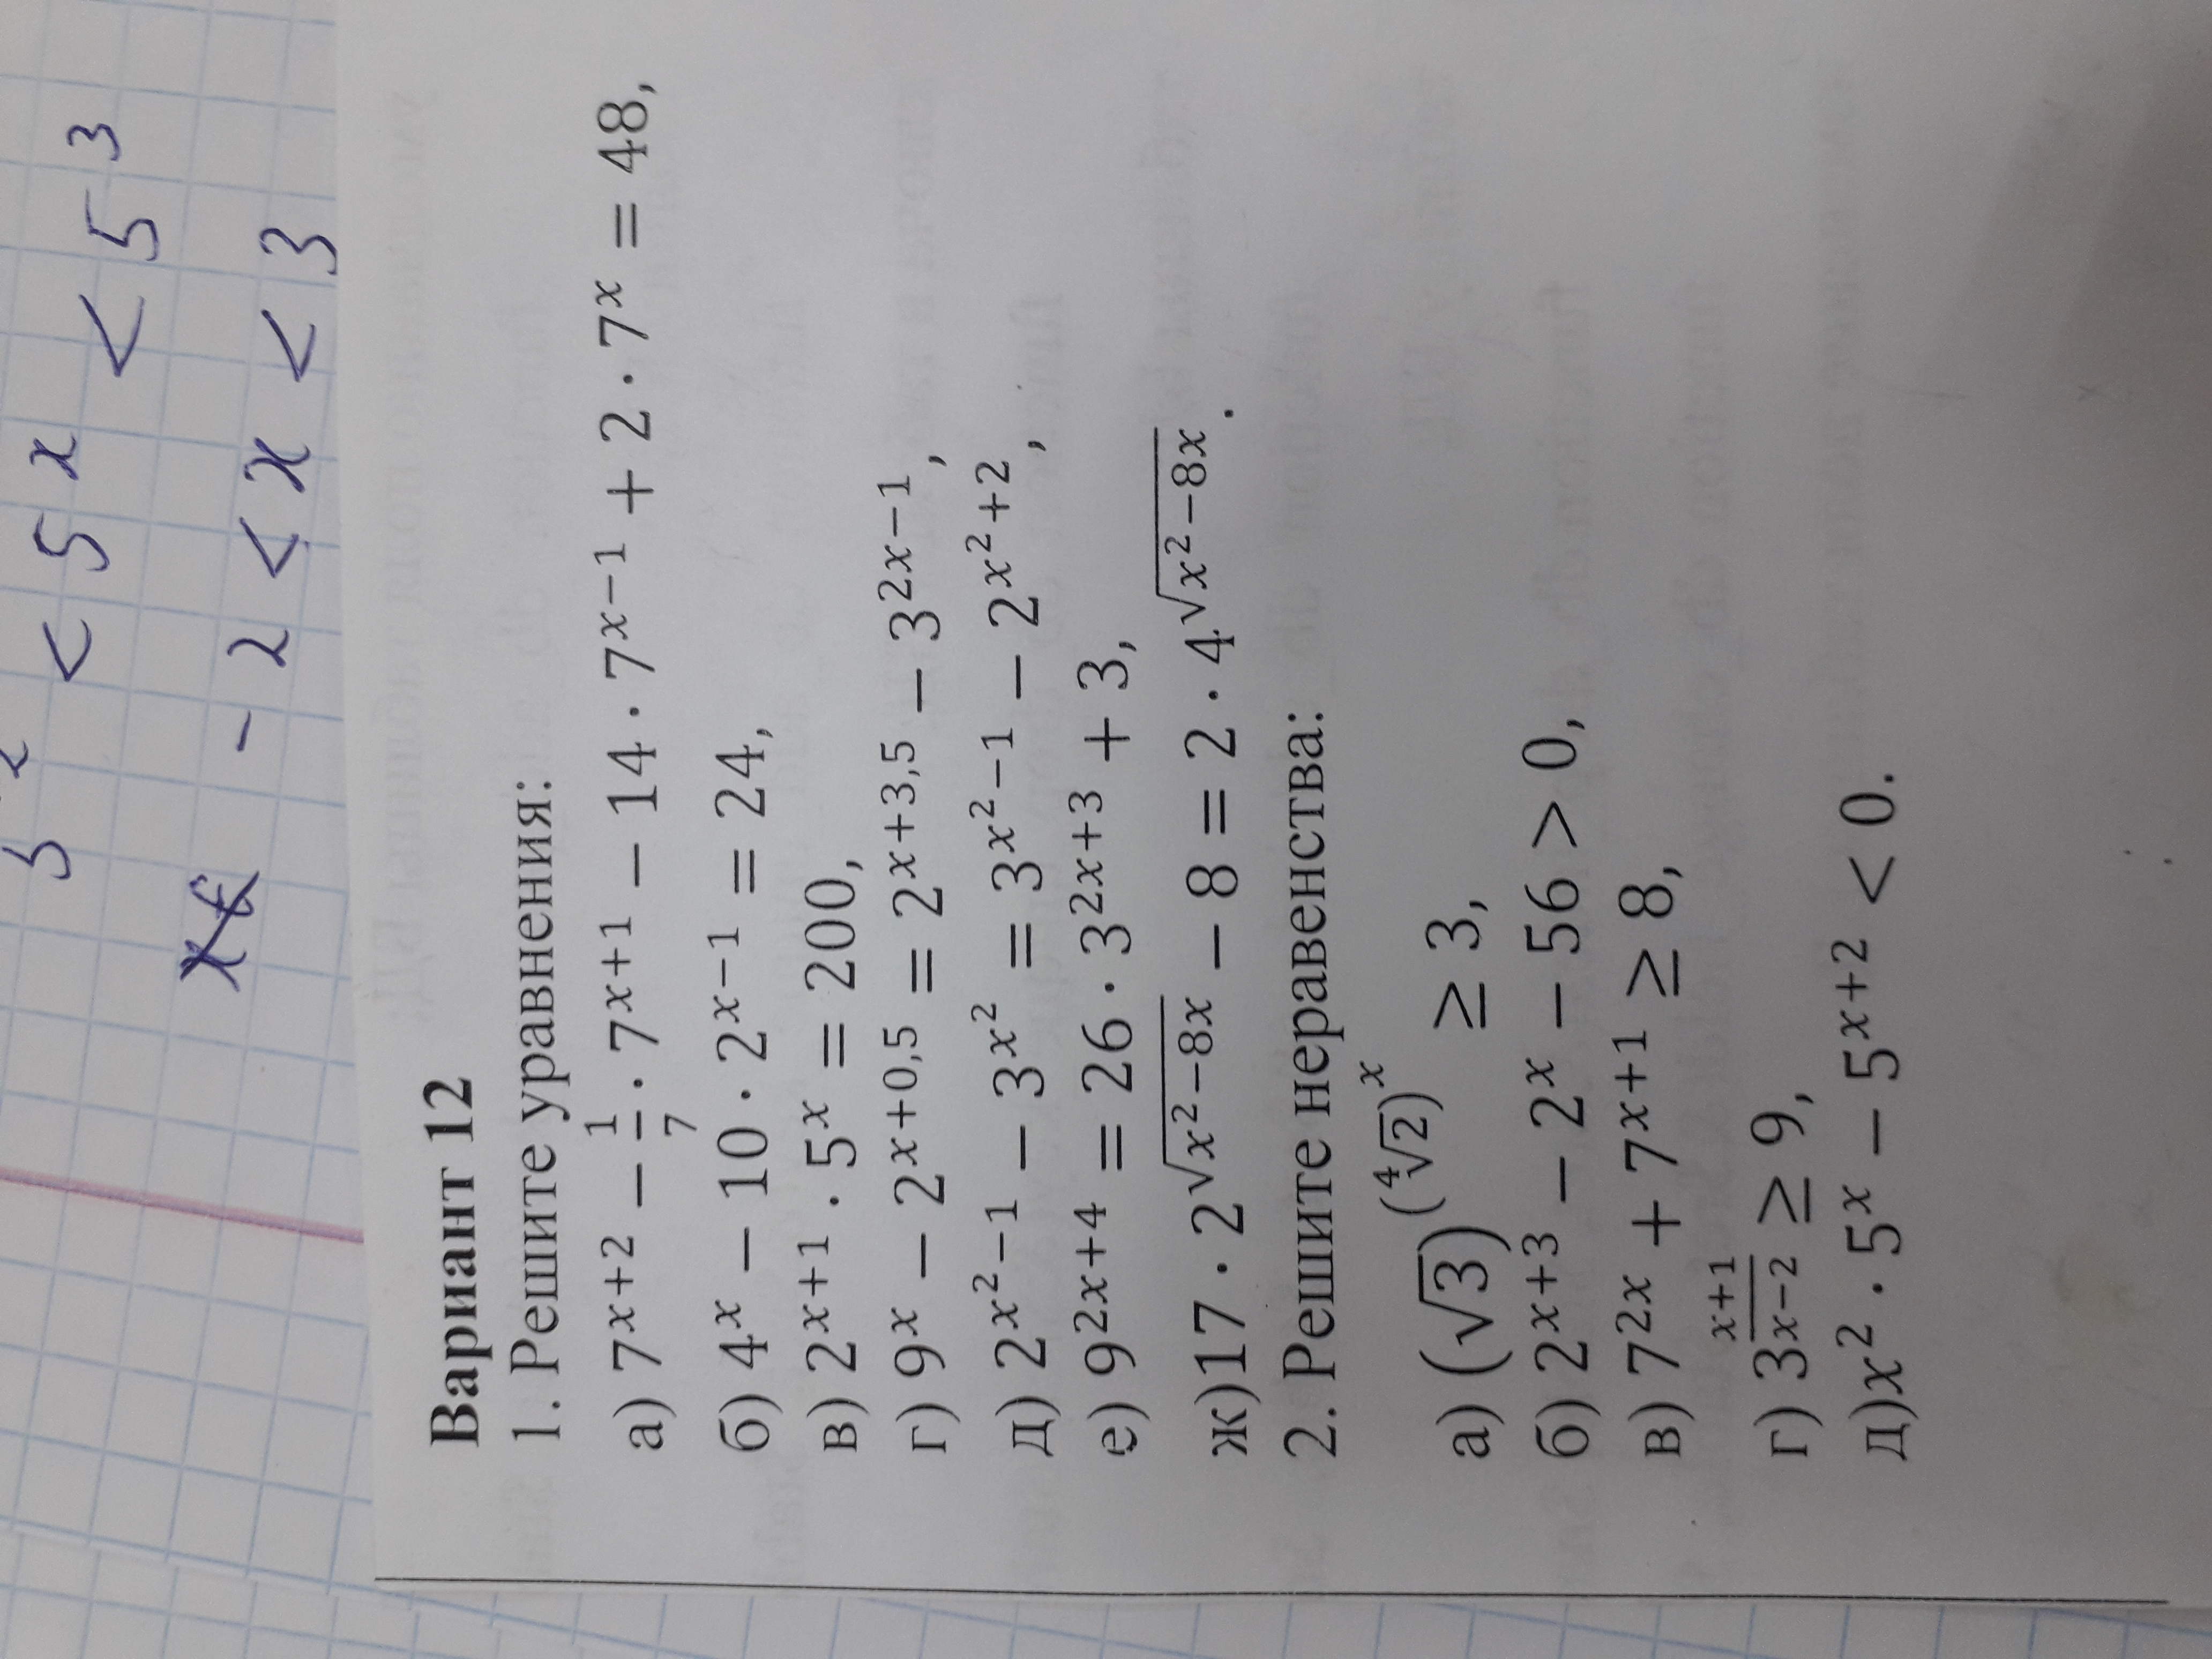 < 5ˣ < 5³
-2 < x < 3
Вариант 12
1. Решите уравнения:
а) 7ˣ⁺² − 1/7 · 7ˣ⁺¹ − 14 · 7ˣ⁻¹ + 2 · 7ˣ = 48,
б) 4ˣ − 10 · 2ˣ⁻¹ = 24,
в) 2ˣ⁺¹ · 5ˣ = 200,
г) 9ˣ − 2^(x+0,5) = 2^(x+3,5) − 3²ˣ⁻¹,
д) 2^(x²−1) − 3^(x²) = 3^(x²−1) − 2^(x²+2),
е) 9²ˣ⁺⁴ = 26 · 3²ˣ⁺³ + 3,
ж)17 · 2^(√(x²−8x)) − 8 = 2 · 4^(√(x²−8x)).
2. Решите неравенства:
а) (√3)^((⁴√2)ˣ) ≥ 3,
б) 2ˣ⁺³ − 2ˣ − 56 > 0,
в) 7²ˣ + 7ˣ⁺¹ ≥ 8,
г) 3^((x+1)/(x−2)) ≥ 9,
д)x² · 5ˣ − 5ˣ⁺² < 0.